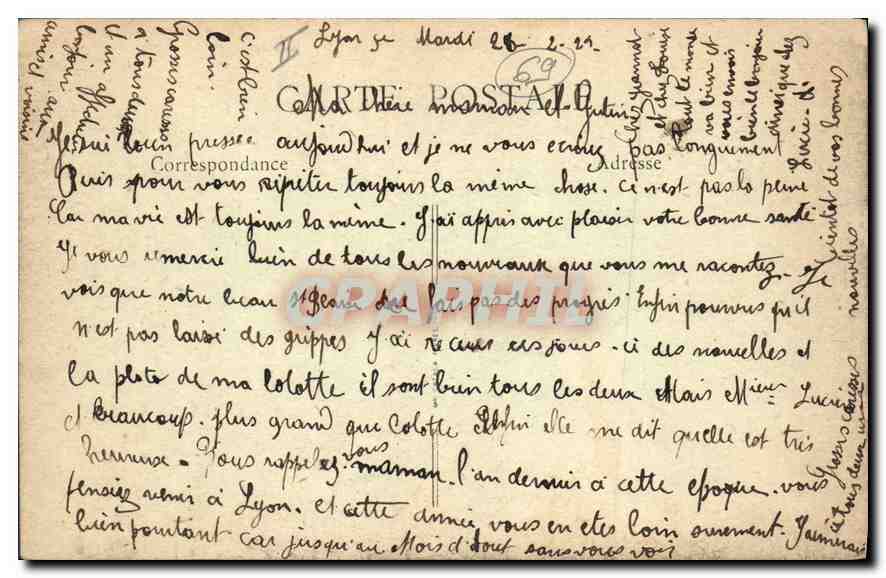 II
Lyon le Mardi 26-2-29
69
CARTE POSTALE
Ma Chère maman et
Je suis bien pressée aujourd'hui et je ne vous ecrirez pas longuement
Correspondance
Adresse
Puis pour vous repeter toujours la même chose. ci n'est pas la peine
Car ma vie est toujours la même. J'ai appris avec plaisir votre bonne santé
Je vous remercie bien de tous les nouveaux que vous me racontez. Je
vois que notre beau St Jean ne fais pas des progrès Enfin pourvus qu'il
n'est pas laissé des grippes J'ai recus ces jours-ci des nouvelles et
la photo de ma Colotte il sont bien tous les deux Mais Mieur Lucien
et beaucoup plus grand que Colotte Enfin elle me dit quelle est très
heureuse. Vous rappelez vous maman. l'an dernier à cette epoque. vous
pensiez venir à Lyon. et cette année vous en etes loin surement. J'aimerais
bien pourtant car jusqu'au Mois d'Aout sans vous voir
c'est bien
loin.
Grosses caresses
à tous deux
et un affectueux
bonjour aux
amis et voisins
Chez Jeannot
et chez Louise
tout le monde
va bien et
vous envois
bien le bonjour
ainsi que chez
Lucie. à
bientot de vos bonnes
nouvelles
Grosses caresses
à tous deux
CPAPHIL